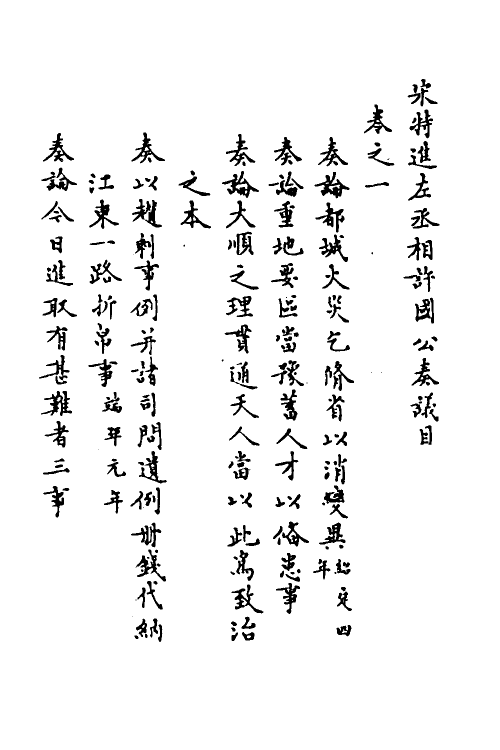 宋特進左丞相許國公奏議目
卷之一
奏論都城火災乞脩省以消變異紹定四年
奏論重地要區當豫蓄人才以俻患事
奏論大順之理貫通天人當以此爲致治
之本
奏以趲剩事例并諸司問遺例册錢代納
江東一路折帛事端平元年
奏論今日進取有甚難者三事